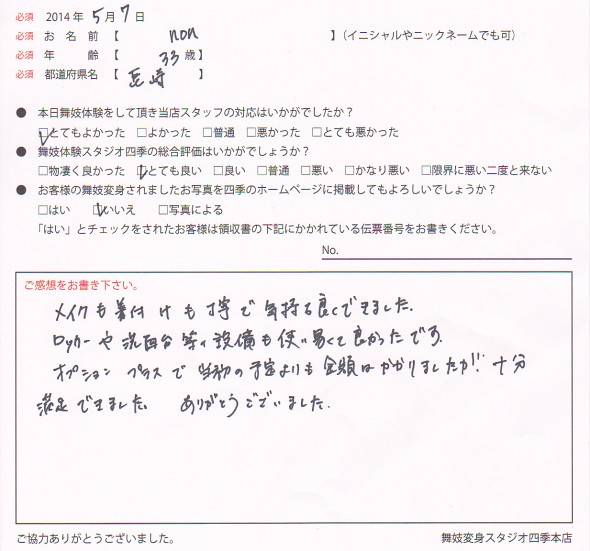 必須 2014年 5月 7日
必須 お名前【 non 】(イニシャルやニックネームでも可)
必須 年齢【 33歳】
必須 都道府県名【 長崎 】
● 本日舞妓体験をして頂き当店スタッフの対応はいかがでしたか?
☑とてもよかった □よかった □普通 □悪かった □とても悪かった
● 舞妓体験スタジオ四季の総合評価はいかがでしょうか?
□物凄く良かった ☑とても良い □良い □普通 □悪い □かなり悪い □限界に悪い二度と来ない
● お客様の舞妓変身されましたお写真を四季のホームページに掲載してもよろしいでしょうか?
□はい ☑いいえ □写真による
「はい」とチェックをされたお客様は領収書の下記にかかれている伝票番号をお書きください。
No.
ご感想をお書き下さい。
メイクも着付けも丁寧で気持ち良くできました。
ロッカーや洗面台等の設備も使い易くて良かったです。
オプションプラスで当初の予定よりも金額はかかりましたが!! 十分
満足できました。 ありがとうございました。
ご協力ありがとうございました。
舞妓変身スタジオ四季本店